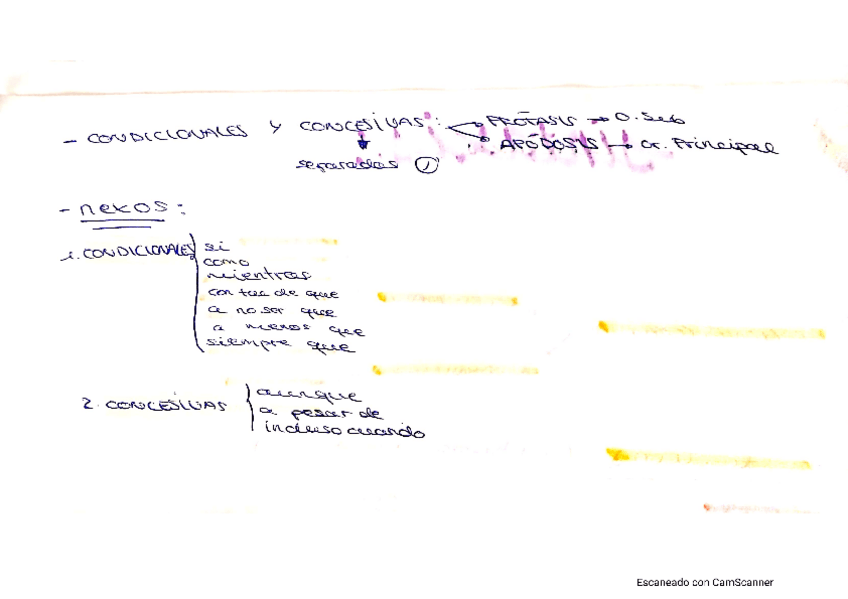 - CONDICIONALES Y CONCESIVAS: PRÓTASIS → O. Sub
APÓDOSIS → Or. Principal
separadas (,)
- nexos:
1. CONDICIONALES si
como
mientras
con tal de que
a no ser que
a menos que
siempre que
2. CONCESIVAS aunque
a pesar de
incluso cuando
Escaneado con CamScanner